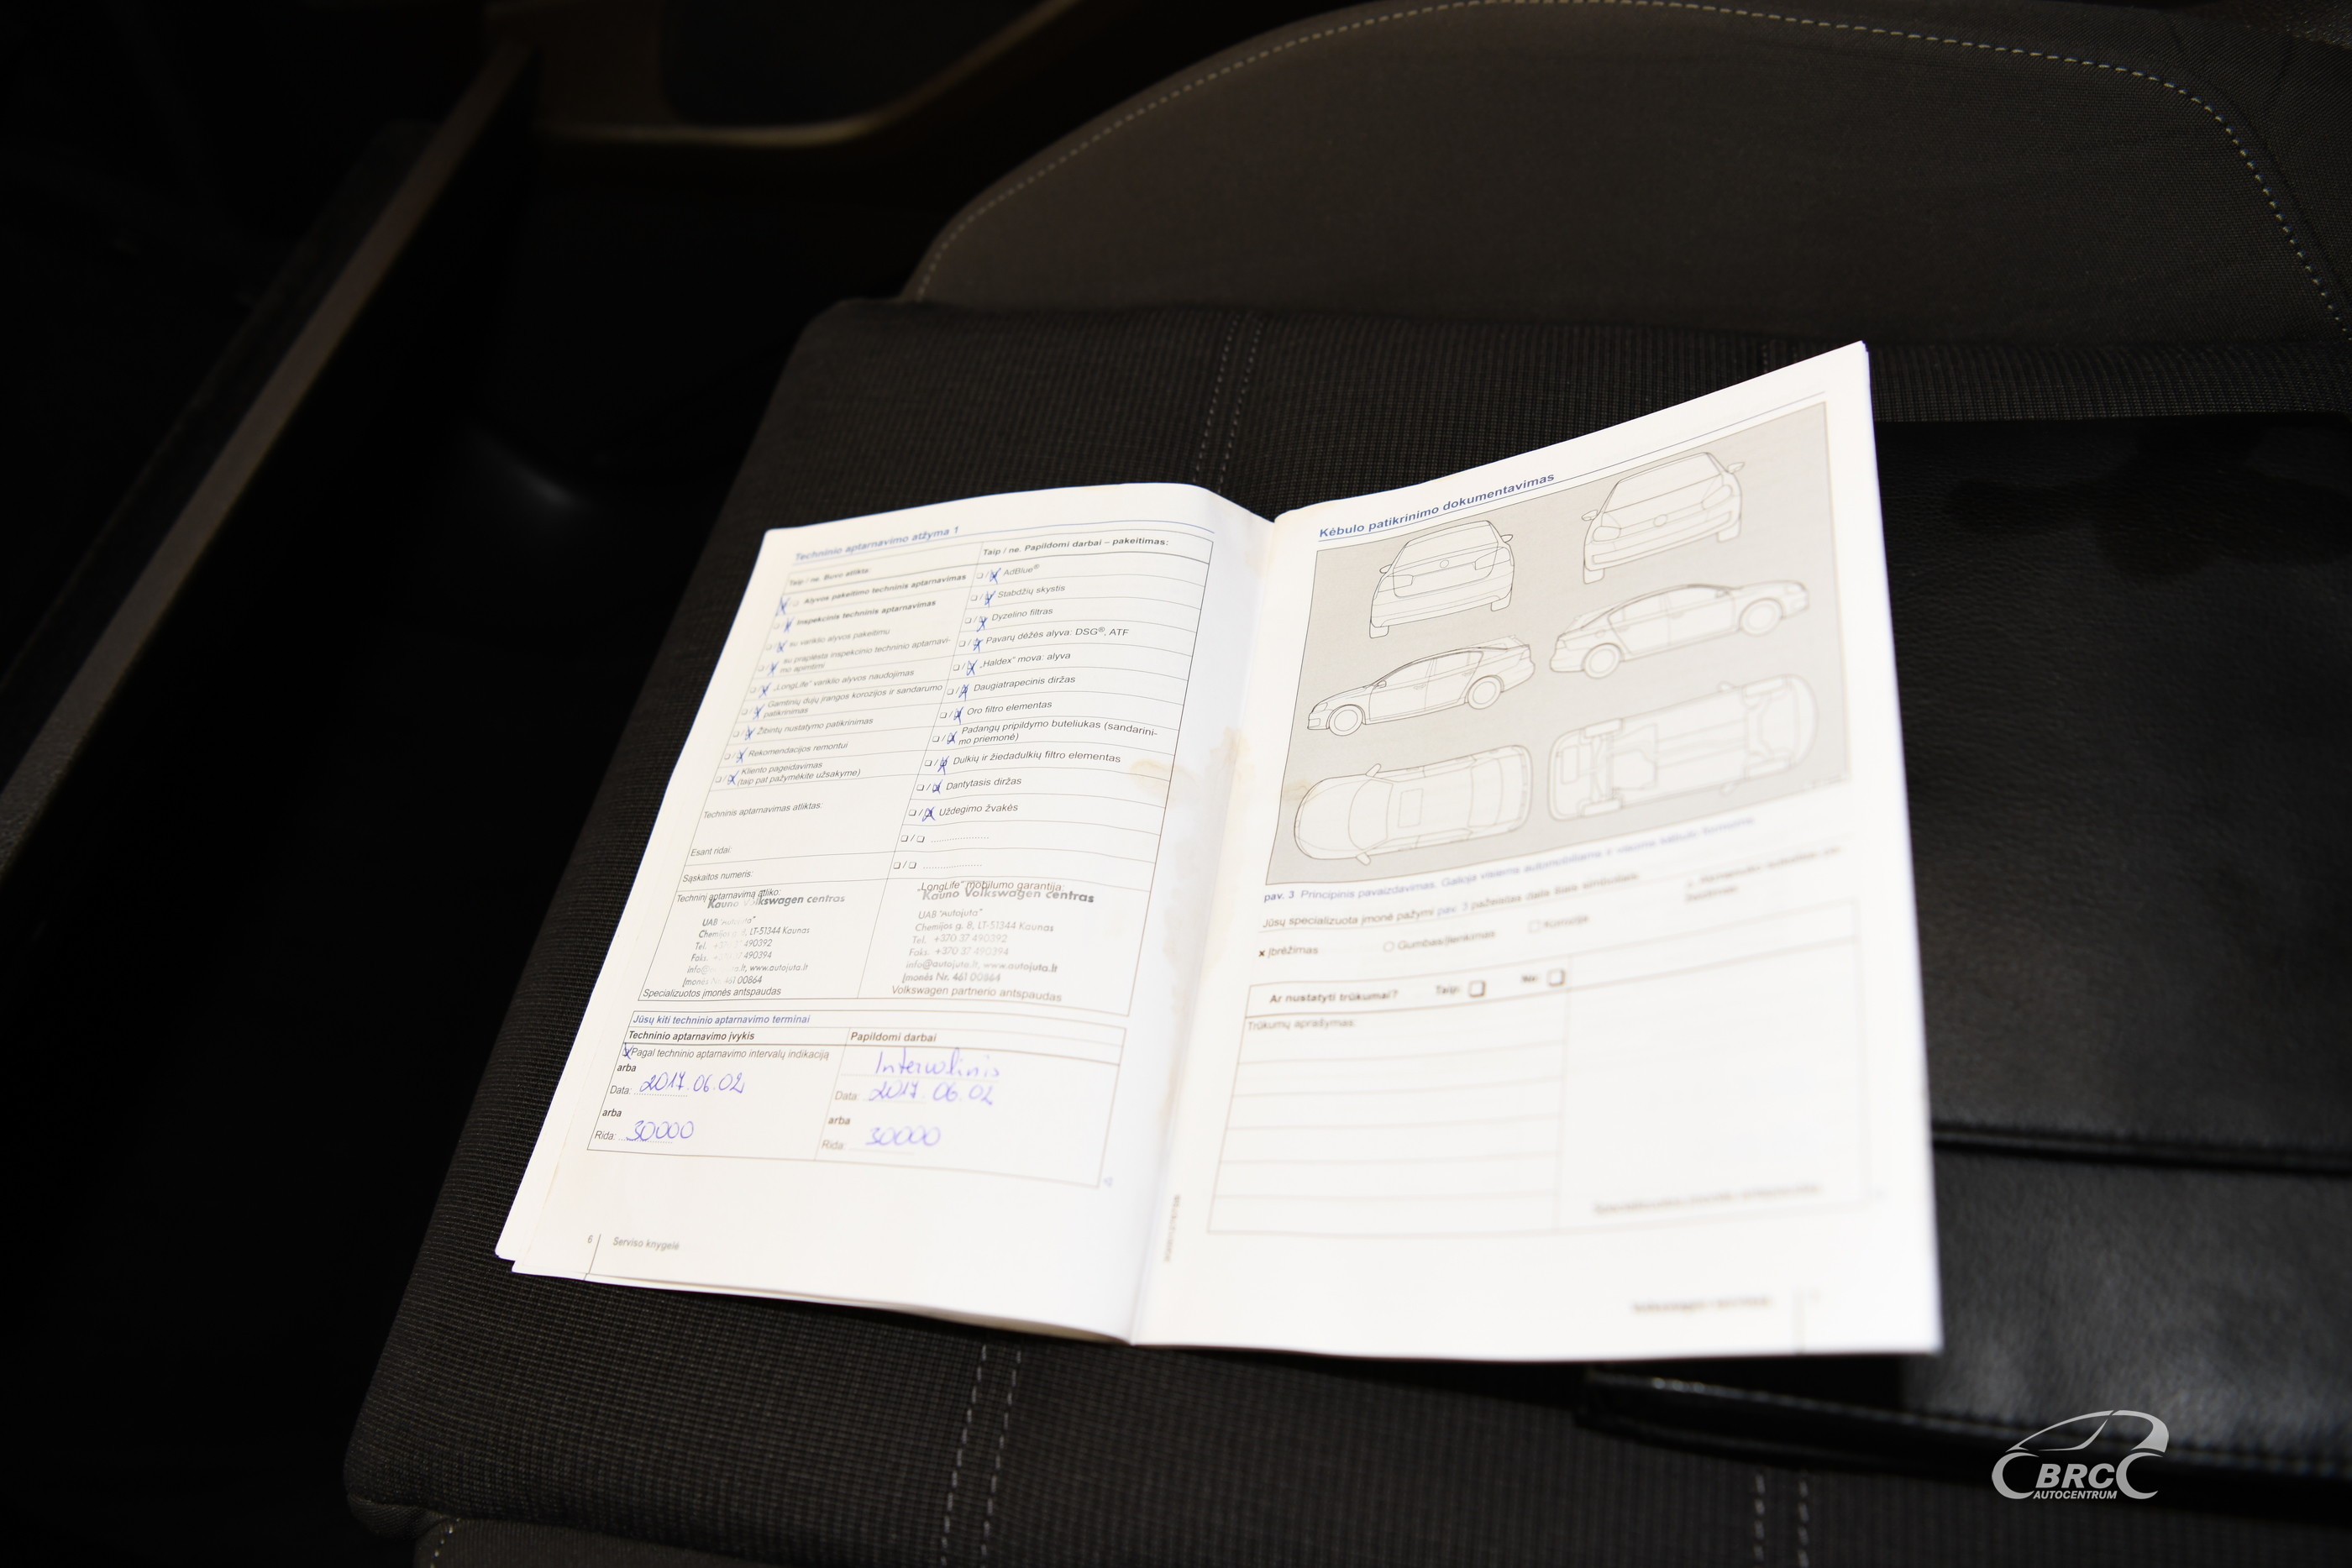 Techninio aptarnavimo atžyma 1
Taip / ne. Buvo atlikta:
Alyvos pakeitimo techninis aptarnavimas
Inspekcinis techninis aptarnavimas
su variklio alyvos pakeitimu
su praplėsta inspekcinio techninio aptarnavi-
mo apimtimi
„LongLife“ variklio alyvos naudojimas
Gamtinių dujų įrangos korozijos ir sandarumo
patikrinimas
Žibintų nustatymo patikrinimas
Rekomendacijos remontui
Kliento pageidavimas
(taip pat pažymėkite užsakyme)
Techninis aptarnavimas atliktas:
Esant ridai:
Sąskaitos numeris:
Techninį aptarnavimą atliko:
Kauno Volkswagen centras
UAB "Autojuta"
Chemijos g. 8, LT-51344 Kaunas
Tel. +370 37 490392
Faks. +370 37 490394
info@autojuta.lt, www.autojuta.lt
Įmonės Nr. 461 00864
Specializuotos įmonės antspaudas
Taip / ne. Papildomi darbai – pakeitimas:
AdBlue®
Stabdžių skystis
Dyzelino filtras
Pavarų dėžės alyva: DSG®, ATF
„Haldex“ mova: alyva
Daugiatrapecinis diržas
Oro filtro elementas
Padangų pripildymo buteliukas (sandarini-
mo priemonė)
Dulkių ir žiedadulkių filtro elementas
Dantytasis diržas
Uždegimo žvakės
„LongLife“ mobilumo garantija:
Kauno Volkswagen centras
UAB "Autojuta"
Chemijos g. 8, LT-51344 Kaunas
Tel. +370 37 490392
Faks. +370 37 490394
info@autojuta.lt, www.autojuta.lt
Įmonės Nr. 461 00864
Volkswagen partnerio antspaudas
Jūsų kiti techninio aptarnavimo terminai
Techninio aptarnavimo įvykis
Pagal techninio aptarnavimo intervalų indikaciją
arba
Data: 2017.06.02
arba
Rida: 30000
Papildomi darbai
Intervalinis
Data: 2017.06.02
arba
Rida: 30000
6 Serviso knygelė
Kėbulo patikrinimo dokumentavimas
pav. 3 Principinis pavaizdavimas. Galioja visiems automobiliams ir visiems kėbulo formoms
Jūsų specializuota įmonė pažymi pav. 3 pažeistas dalis šiais simboliais
x Įbrėžimas
Gumbas/įlenkimas
Ar nustatyti trūkumai? Taip: Ne:
Trūkumų aprašymas:
BRC
AUTOCENTRUM